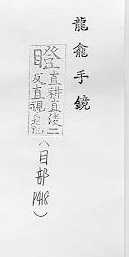 龍龕手鏡
瞪
直耕直陵二
反直視
(目部 P418)